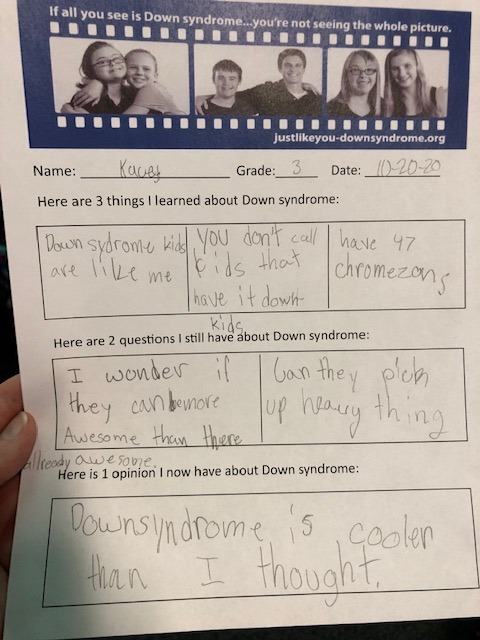 If all you see is Down syndrome...you're not seeing the whole picture.
justlikeyou-downsyndrome.org
Name: Kacey Grade: 3 Date: 10-20-20
Here are 3 things I learned about Down syndrome:
Down sydrome kids
are like me
you don't call
kids that
have it down-
kids
have 47
chromezons
Here are 2 questions I still have about Down syndrome:
I wonder if
they can be more
Awesome than there
allready awesome.
Can they pick
up heavy thing
Here is 1 opinion I now have about Down syndrome:
Downsyndrome is cooler
than I thought.